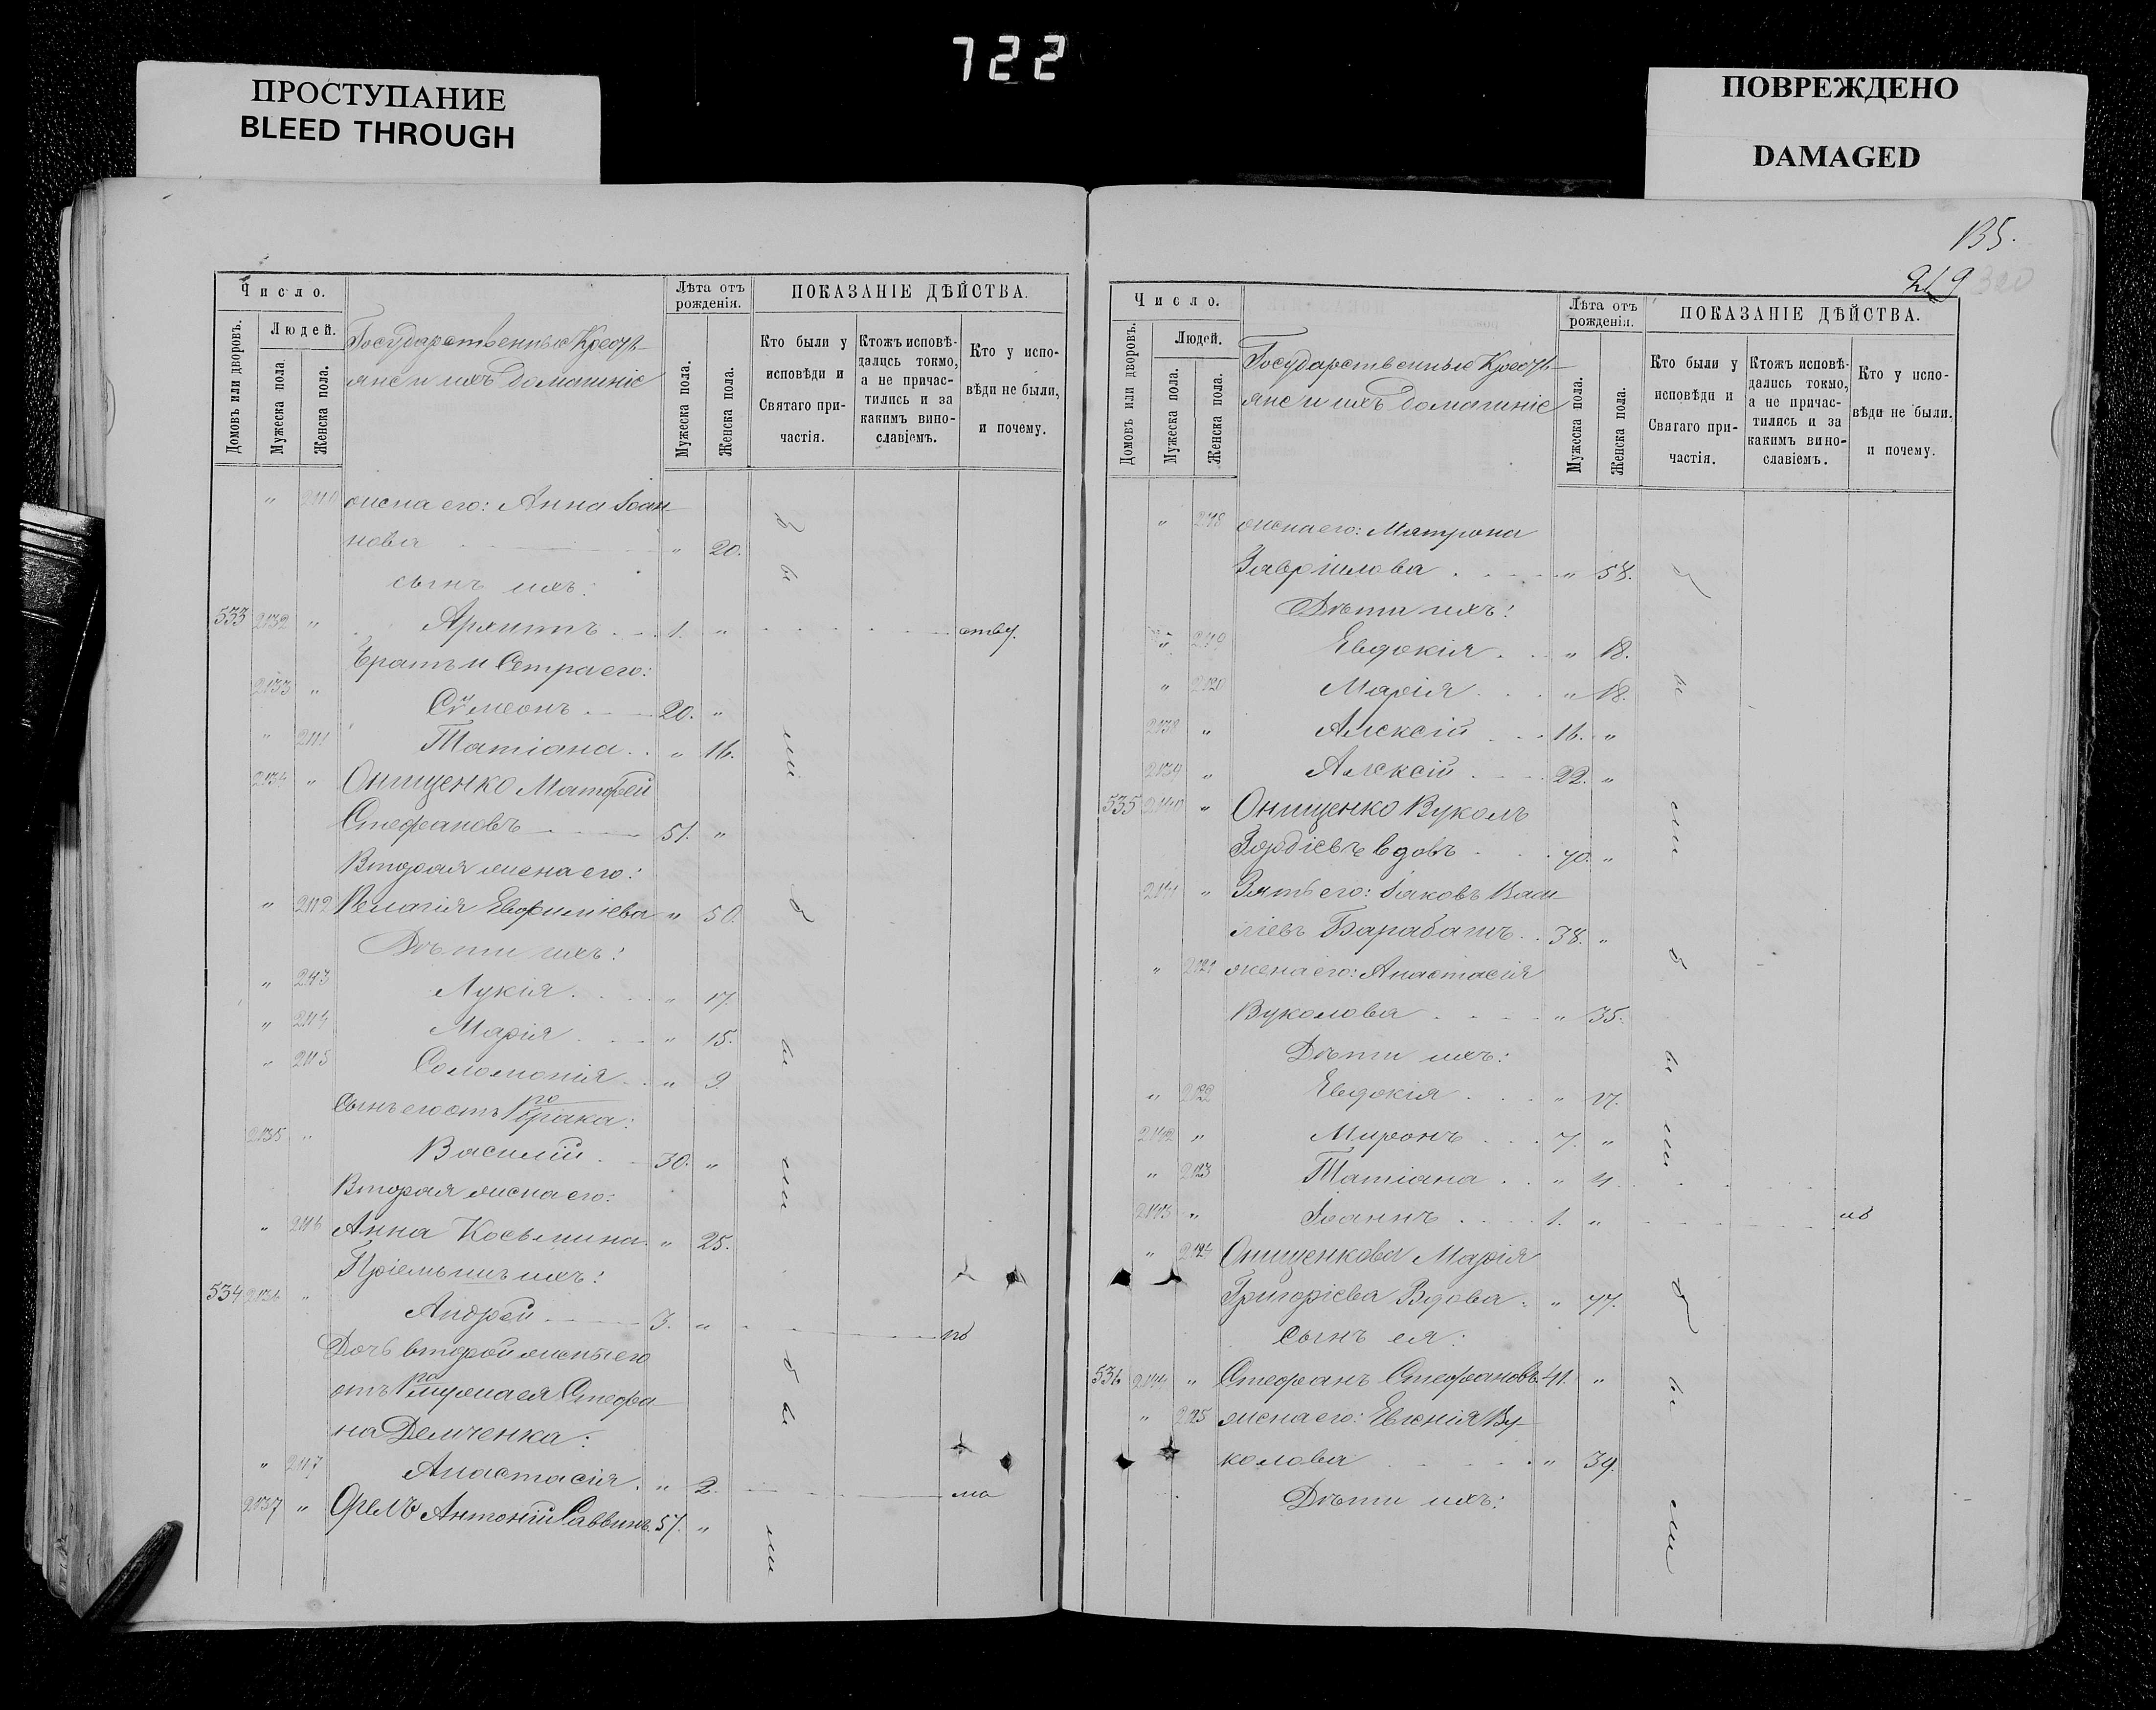 722
ПРОСТУПАНИЕ
BLEED THROUGH
ПОВРЕЖДЕНО
DAMAGED
Число.
Людей.
Домовъ или дворовъ.
Мужеска пола
Женска пола.
Государственные Кресть-
яне и ихъ домашніе
Лѣта отъ
рожденія.
Мужеска пола.
Женска пола.
ПОКАЗАНІЕ ДѢЙСТВА.
Кто были у
исповѣди и
Святаго при-
частія.
Ктожъ исповѣ-
дались токмо,
а не причас-
тились и за
какимъ вино-
славіемъ.
Кто у испо-
вѣди не были,
и почему.
" жена его: Анна Іоан-
нова " 20.
сынъ ихъ:
533 2132 " Архипъ 1. "
Братъ и Сестра его:
2133 " Сѵмеонъ 20. "
" 2111 Татіана " 16.
2134 " Онищенко Матфей
Стефановъ 51. "
Вторая жена его:
" 2112 Пелагія Евфиміева " 50.
Дѣти ихъ:
" 2113 Лукія " 17.
" 2114 Марія " 15.
" 2115 Соломонія " 9.
Сынъ его отъ 1го брака:
2135 " Василій 30. "
Вторая жена его:
" 2116 Анна Косьмина " 25.
Пріемышъ ихъ:
534 2136 " Андрей 3. "
Дочь второй жены его
отъ 1го мужа ея Стефа-
на Демченка:
" 2117 Анастасія " 2. ма
2137 " Антоній Саввинъ 57. "
были
были
были
135.
Число.
Людей.
Домовъ или дворовъ.
Мужеска пола.
Женска пола.
Государственные Кресть-
яне и ихъ домашніе
Лѣта отъ
рожденія.
Мужеска пола.
Женска пола.
ПОКАЗАНІЕ ДѢЙСТВА.
Кто были у
исповѣди и
Святаго при-
частія.
Ктожъ исповѣ-
дались токмо,
а не причас-
тились и за
какимъ вино-
славіемъ.
Кто у испо-
вѣди не были,
и почему.
" 2118 жена его: Матрона
Гавріилова " 58.
Дѣти ихъ:
" 2119 Евдокія " 18.
" 2120 Марія " 18.
2138 " Алексій 16. "
2139 " Алексій 22. "
535 2140 " Онищенко Вуколъ
Гордіевъ вдовъ 70. "
2141 " Зять его: Іаковъ Васи-
ліевъ Барабашъ 38. "
" 2121 жена его: Анастасія
Вуколова " 35.
Дѣти ихъ:
" 2122 Евдокія "
2142 " Миронъ 7. "
" 2123 Татіана " 4.
2143 " Іоаннъ 1. "
" 2124 Онищенкова Марія
Григорієва Вдова " 77.
Сынъ ея:
536 2144 " Стефанъ Стефановъ 41. "
" 2125 жена его: Евгенія Ву-
колова " 39.
Дѣти ихъ:
были
были
были